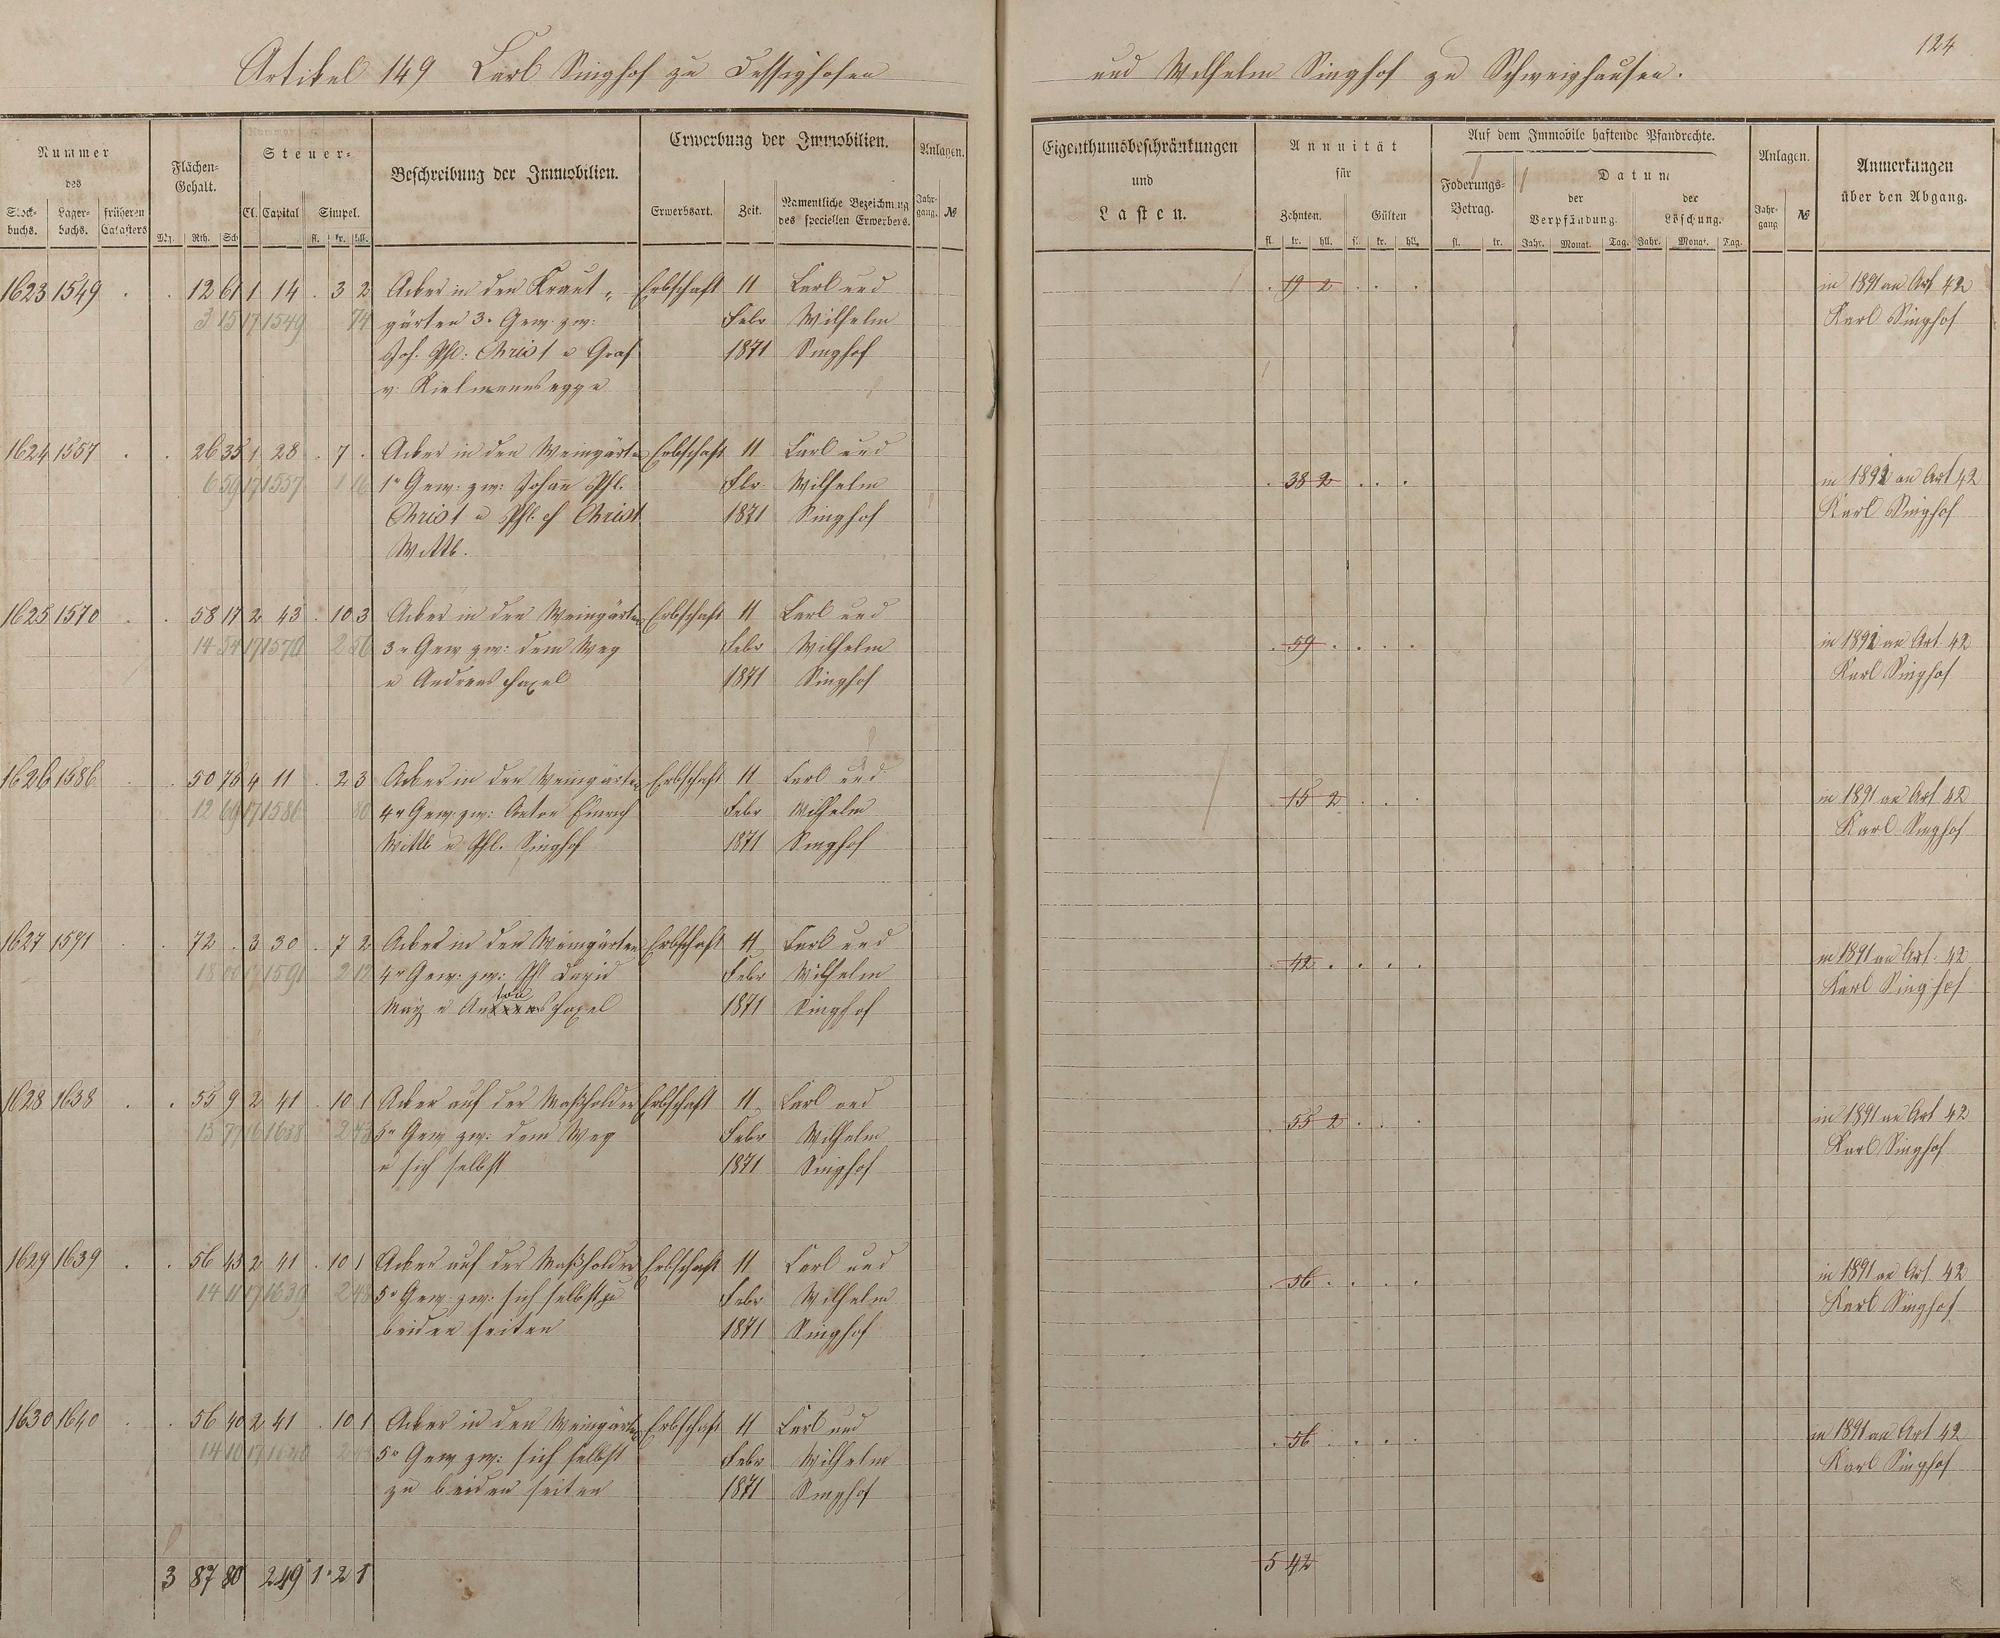 124
Artikel 149 Carl Singhof zu Dessighofen und Wilhelm Singhof zu Schweighausen.
Nummer des
Stock-buchs. Lager-buchs. früheren Catasters
Flächen-Gehalt.
Mg. Rth. Sch.
Steuer-
Cl. Capital Simpel.
fl. kr. hll.
Beschreibung der Immobilien.
Erwerbung der Immobilien.
Erwerbsart. Zeit. Namentliche Bezeichnung des speciellen Erwerbers.
Anlagen.
Jahr-gang. №
Eigenthumsbeschränkungen
und
Lasten.
Annuität
für
Zehnten. Gülten
fl. kr. hll. fl. kr. hll.
Auf dem Immobile haftende Pfandrechte.
Foderungs-Betrag.
fl. kr.
Datum
der Verpfändung. der Löschung.
Jahr. Monat. Tag. Jahr. Monat. Tag.
Anlagen.
Jahr-gang №
Anmerkungen
über den Abgang.
1623 1549 . . 12 61 1 14 . 3 2 Acker in den Kraut- Erbschaft 11 Carl und . 19 2 . . . in 1891 an Art 42
3 15 17 1549 74 gärten 3r Gew. zw: Febr Wilhelm Karl Singhof
Joh. Phl: Christ u Graf 1871 Singhof
v. Kielmannsegge
1624 1557 . . 26 35 1 28 . 7 . Acker in den Weingärten Erbschaft 11 Carl und
6 59 17 1557 1 16 1r Gew. zw: Johan Phl. Febr Wilhelm . 38 2 . . . in 1891 an Art 42
Christ u Phl. Christ 1871 Singhof Karl Singhof
Wittb.
1625 1570 . . 58 17 2 43 . 10 3 Acker in den Weingärten Erbschaft 11 Carl und
14 54 17 1570 2 56 3r Gew zw: dem Weg Febr Wilhelm . 59 . . . . in 1891 an Art. 42
u Andreas 1871 Singhof Karl Singhof
1626 1586 . . 50 75 4 11 . 2 3 Acker in den Weingärten Erbschaft 11 Carl und . 15 2 . . . in 1891 an Art 42
12 69 17 1586 80 4r Gew. zw: Anton Febr Wilhelm Karl Singhof
Wittb u Phl. Singhof 1871 Singhof
1627 1591 . . 72 . 3 30 . 7 2 Acker in den Weingärten Erbschaft 11 Carl und in 1891 an Art. 42
18 00 17 1591 2 12 4r Gew: zw: Phl David Febr Wilhelm . 42 . . . . Karl Singhof
May u Anton 1871 Singhof
1628 1638 . . 55 9 2 41 . 10 1 Acker auf der Maßholder Erbschaft 11 Carl und in 1891 an Art 42
13 77 16 1638 2 43 5r Gew zw: dem Weg Febr Wilhelm . 55 2 . . Karl Singhof
u sich selbst 1871 Singhof
1629 1639 . . 56 45 2 41 . 10 1 Acker auf der Maßholder Erbschaft 11 Carl und in 1891 an Art. 42
14 11 17 1639 2 48 5r Gew. zw: sich selbst zu Febr Wilhelm . 56 . . . . Karl Singhof
beiden seiten 1871 Singhof
1630 1640 . . 56 40 2 41 . 10 1 Acker in den Weingärten Erbschaft 11 Carl und in 1891 an Art 42
14 10 17 1640 2 48 5r Gew zw: sich selbst Febr Wilhelm . 56 . . . . Karl Singhof
zu beiden seiten 1871 Singhof
3 87 80 249 1 . 2 1 5 42